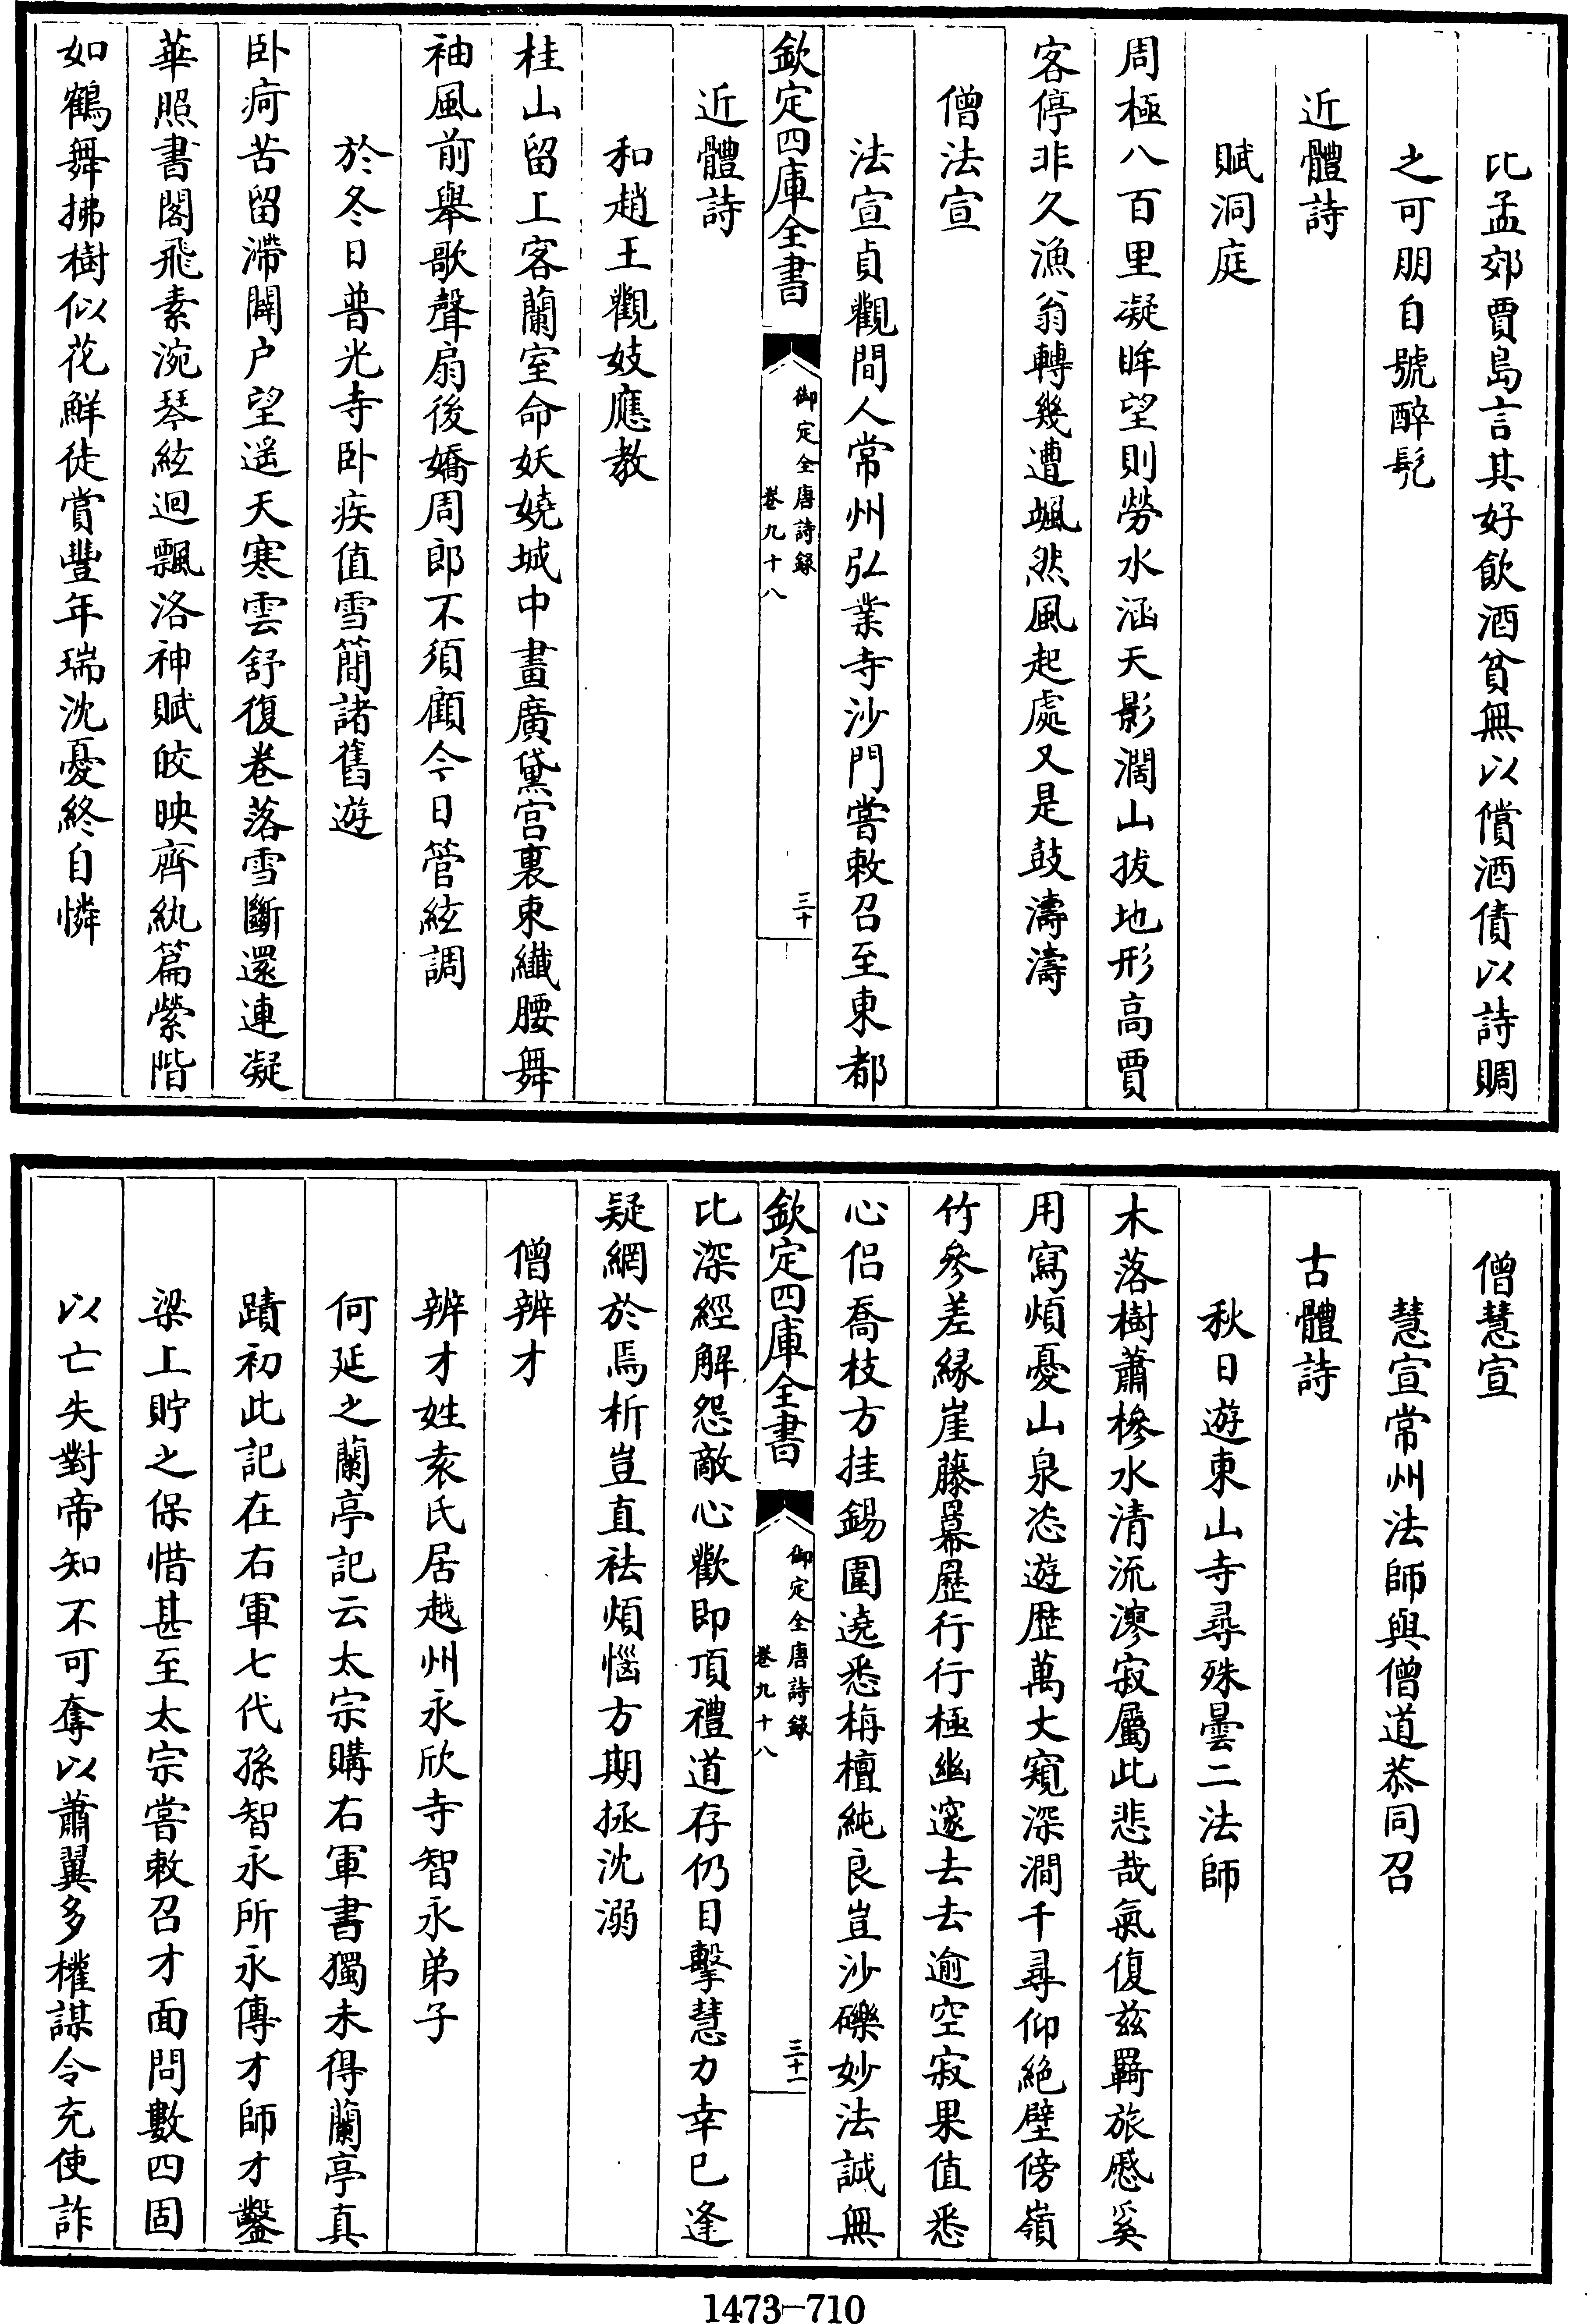 比孟郊賈島言其好飲酒貧無以償酒債以詩賙
之可朋自號醉髠
近體詩
賦洞庭
周極八百里凝眸望則勞水涵天影濶山拔地形高賈
客停非久漁翁轉幾遭颯然風起處又是鼓濤濤
僧法宣
法宣貞觀間人常州弘業寺沙門嘗敕召至東都
欽定四庫全書
御定全唐詩錄
卷九十八
三十
近體詩
和趙王觀妓應教
桂山留上客蘭室命妖嬈城中畫廣黛宫裏束纖腰舞
袖風前舉歌聲扇後嬌周郎不須顧今日管絃調
於冬日普光寺卧疾值雪簡諸舊遊
卧疴苦留滯闢户望遥天寒雲舒復卷落雪斷還連凝
華照書閣飛素涴琴絃迴飄洛神賦皎映齊紈篇縈階
如鶴舞拂樹似花鮮徒賞豐年瑞沈憂終自憐
僧慧宣
慧宣常州法師與僧道恭同召
古體詩
秋日遊東山寺尋殊曇二法師
木落樹蕭槮水清流漻寂屬此悲哉氣復兹羇旅慼奚
用寫煩憂山泉恣遊歷萬丈窺深澗千尋仰絶壁傍嶺
竹參差縁崖藤幕歷行行極幽邃去去逾空寂果值悉
心侣喬枝方挂錫圍遶悉栴檀純良豈沙礫妙法誠無
欽定四庫全書
御定全唐詩錄
卷九十八
三十一
比深經解怨敵心歡即頂禮道存仍目擊慧力幸已逢
疑網於焉析豈直祛煩惱方期拯沈溺
僧辨才
辨才姓袁氏居越州永欣寺智永弟子
何延之蘭亭記云太宗購右軍書獨未得蘭亭真
蹟初此記在右軍七代孫智永所永傳才師才鑿
梁上貯之保惜甚至太宗嘗敕召才面問數四固
以亡失對帝知不可奪以蕭翼多權謀令充使詐
1473-710